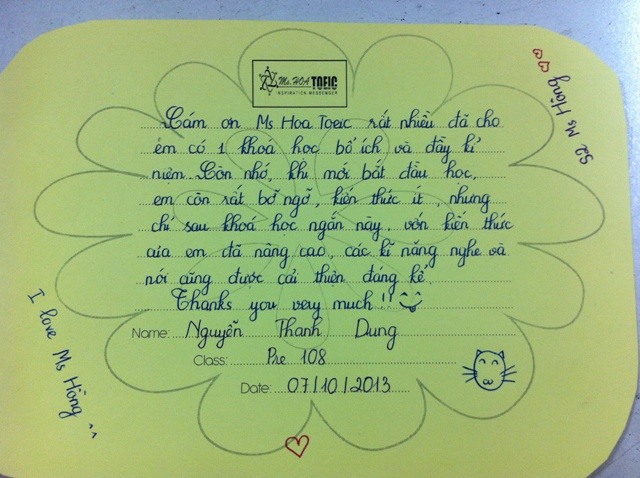 Ms. HOA TOEIC
INSPIRATION MESSENGER
Cám ơn Ms Hoa Toeic rất nhiều đã cho
em có 1 khoá học bổ ích và đầy kỉ
niệm. Còn nhớ, khi mới bắt đầu học,
em còn rất bỡ ngỡ, kiến thức ít, nhưng
chỉ sau khoá học ngắn này, vốn kiến thức
của em đã nâng cao, các kĩ năng nghe và
nói cũng được cải thiện đáng kể.
Thanks you very much !!
Name: Nguyễn Thanh Dung
Class: Pre 108
Date: 07/10/2013
I love Ms Hồng ^^
Ms Hồng